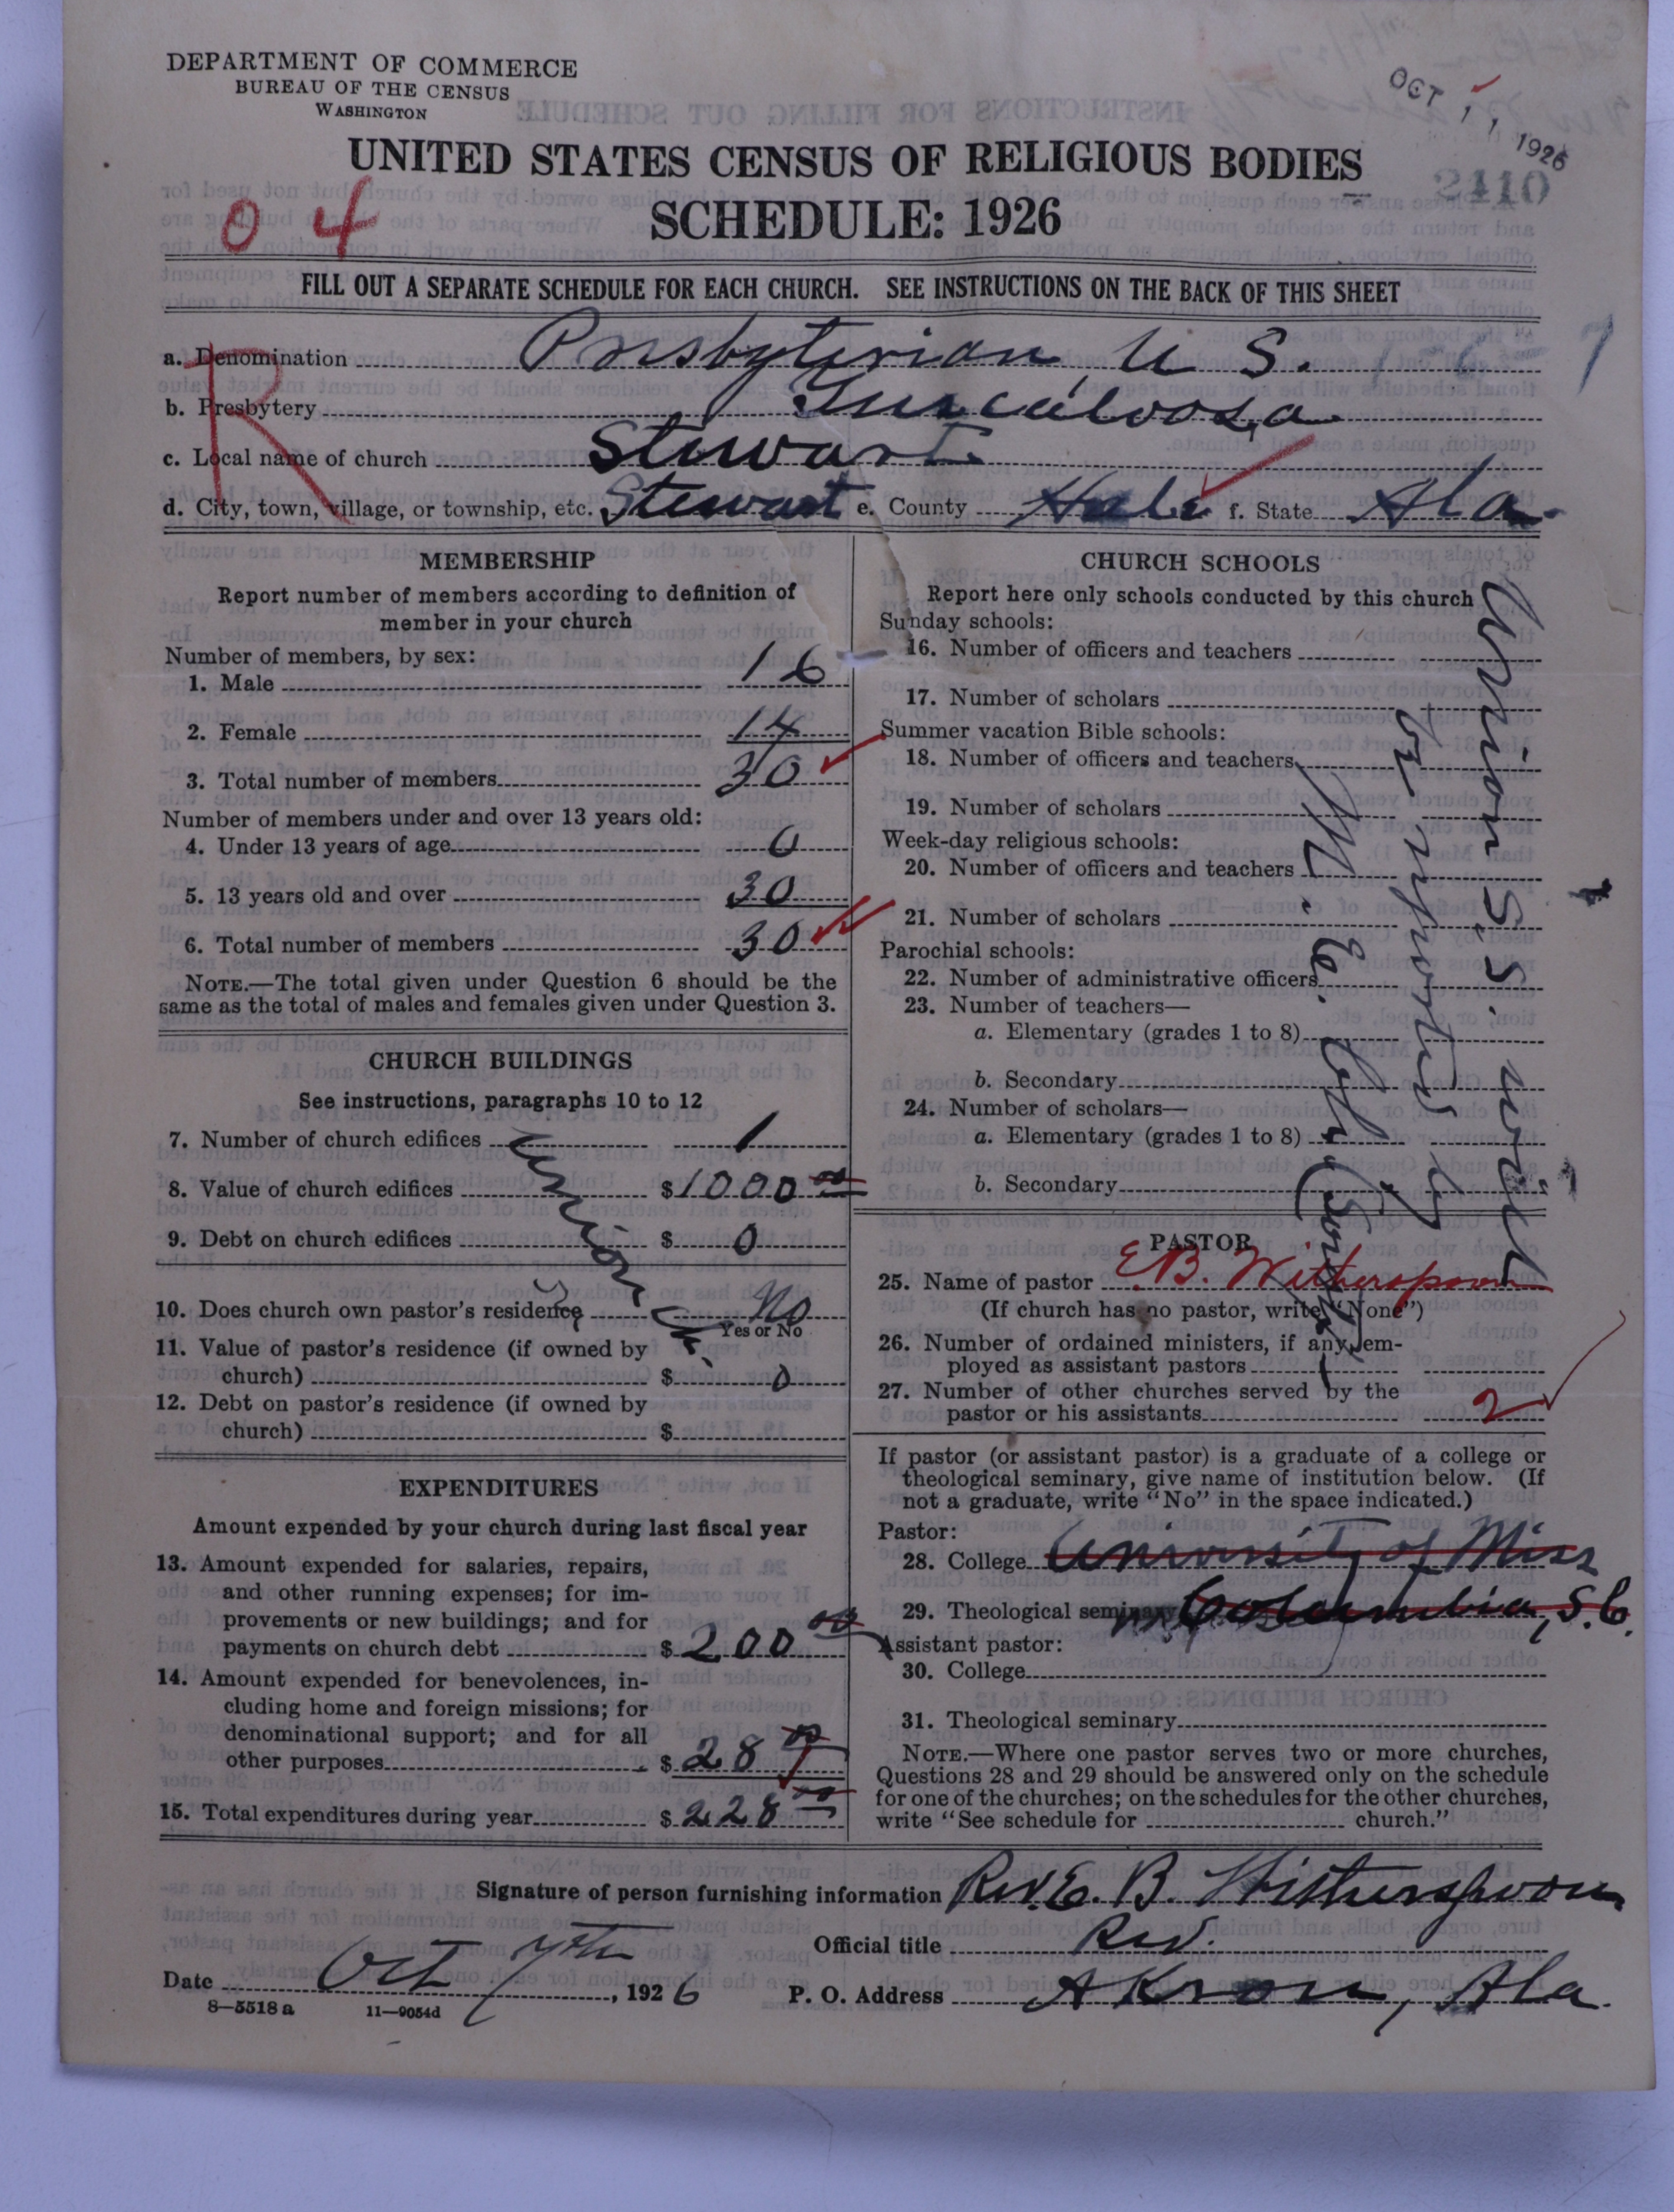 DEPARTMENT OF COMMERCE
BUREAU OF THE CENSUS
WASHINGTON
OCT 11 1926
UNITED STATES CENSUS OF RELIGIOUS BODIES
2410
SCHEDULE: 1926
04
FILL OUT A SEPARATE SCHEDULE FOR EACH CHURCH. SEE INSTRUCTIONS ON THE BACK OF THIS SHEET
R
a. Denomination Presbyterian, U S.
b. Presbytery Tuscaloosa
c. Local name of church Stewart
d. City, town, village, or township, etc. Stewart e. County Hale f. State Ala.
MEMBERSHIP
Report number of members according to definition of
member in your church
Number of members, by sex:
1. Male 16
2. Female 14
3. Total number of members 30
Number of members under and over 13 years old:
4. Under 13 years of age 0
5. 13 years old and over 30
6. Total number of members 30
NOTE.—The total given under Question 6 should be the
same as the total of males and females given under Question 3.
CHURCH BUILDINGS
See instructions, paragraphs 10 to 12
7. Number of church edifices 1
8. Value of church edifices $1000.00
9. Debt on church edifices $ 0
Union Ch.
10. Does church own pastor's residence No
Yes or No
11. Value of pastor's residence (if owned by
church) $ 0
12. Debt on pastor's residence (if owned by
church) $
EXPENDITURES
Amount expended by your church during last fiscal year
13. Amount expended for salaries, repairs,
and other running expenses; for im-
provements or new buildings; and for
payments on church debt $ 200 00
14. Amount expended for benevolences, in-
cluding home and foreign missions; for
denominational support; and for all
other purposes $ 28 00
15. Total expenditures during year $ 228 00
CHURCH SCHOOLS
Report here only schools conducted by this church
Sunday schools:
16. Number of officers and teachers
17. Number of scholars
Summer vacation Bible schools:
18. Number of officers and teachers
19. Number of scholars
Week-day religious schools:
20. Number of officers and teachers
21. Number of scholars
Parochial schools:
22. Number of administrative officers
23. Number of teachers—
a. Elementary (grades 1 to 8)
b. Secondary
24. Number of scholars—
a. Elementary (grades 1 to 8)
b. Secondary
Union S. S. will
be reported by
M. E. Ch. (South)
PASTOR
25. Name of pastor E. B. Witherspoon
(If church has no pastor, write "None")
26. Number of ordained ministers, if any, em-
ployed as assistant pastors
27. Number of other churches served by the
pastor or his assistants 2
If pastor (or assistant pastor) is a graduate of a college or
theological seminary, give name of institution below. (If
not a graduate, write "No" in the space indicated.)
Pastor:
28. College University of Miss
29. Theological seminary Columbia, S.C.
Assistant pastor:
30. College
31. Theological seminary
NOTE.—Where one pastor serves two or more churches,
Questions 28 and 29 should be answered only on the schedule
for one of the churches; on the schedules for the other churches,
write "See schedule for church."
Signature of person furnishing information Rev. E. B. Witherspoon
Official title Rev.
Date Oct 7th, 1926 P. O. Address Akron, Ala.
8—5518 a 11—9054d